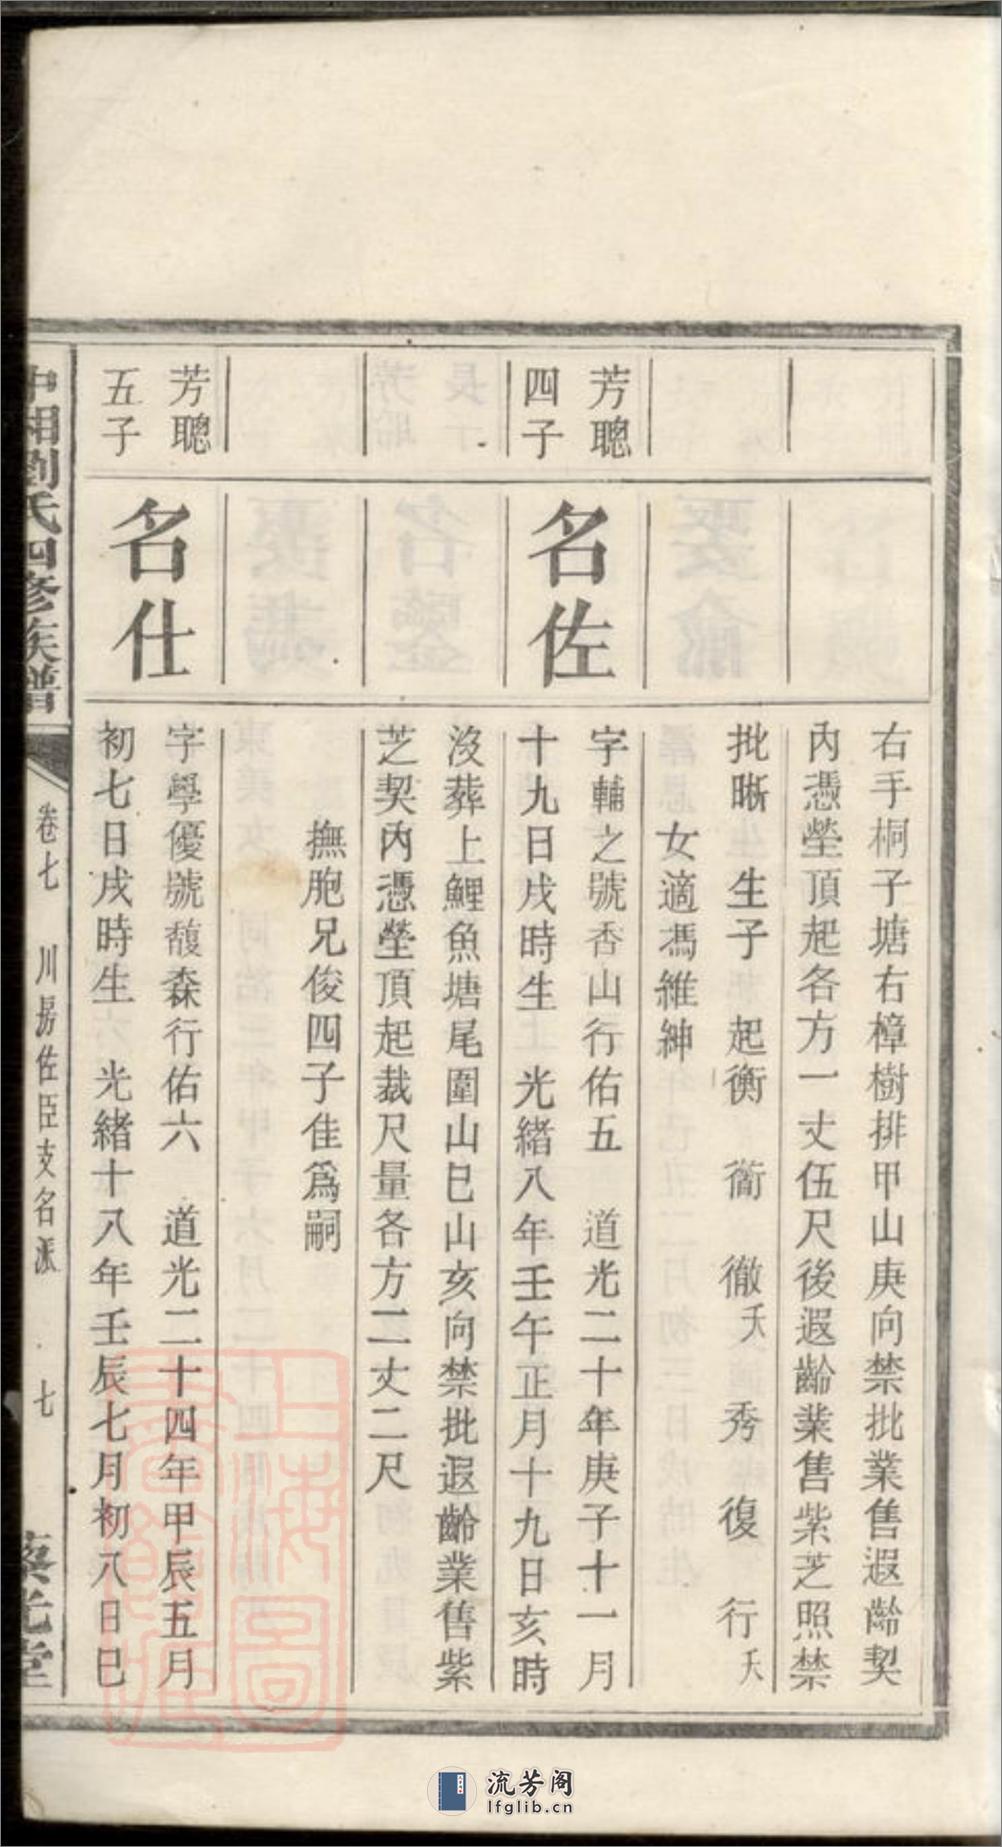 右手桐子塘右樟樹排甲山庚向禁批業售遐齡契
內憑塋頂起各方一丈伍尺後遐齡業售紫芝照禁
批晰　生子　起衡　衜　徹夭　秀　復　行夭
女適馮維紳
芳聰
四子
名佐
字輔之號香山行佑五　道光二十年庚子十一月
十九日戌時生　光緒八年壬午正月十九日亥時
沒葬上鯉魚塘尾圍山巳山亥向禁批遐齡業售紫
芝契內憑塋頂起裁尺量各方二丈二尺
撫胞兄俊四子佳爲嗣
芳聰
五子
名仕
字學優號馥森行佑六　道光二十四年甲辰五月
初七日戌時生　光緒十八年壬辰七月初八日巳
中湘劉氏四修族譜
卷七　川房佐臣支名派　七
藜光堂
上海圖書館藏
流芳阁
lfglib.cn